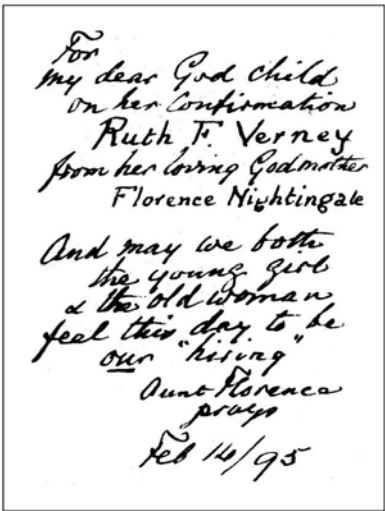 For
my dear God child
on her Confirmation
Ruth F. Verney
from her loving Godmother
Florence Nightingale
And may we both
the young girl
& the old woman
feel this day to be
our "hiring"
Aunt Florence
prays
Feb 14/95